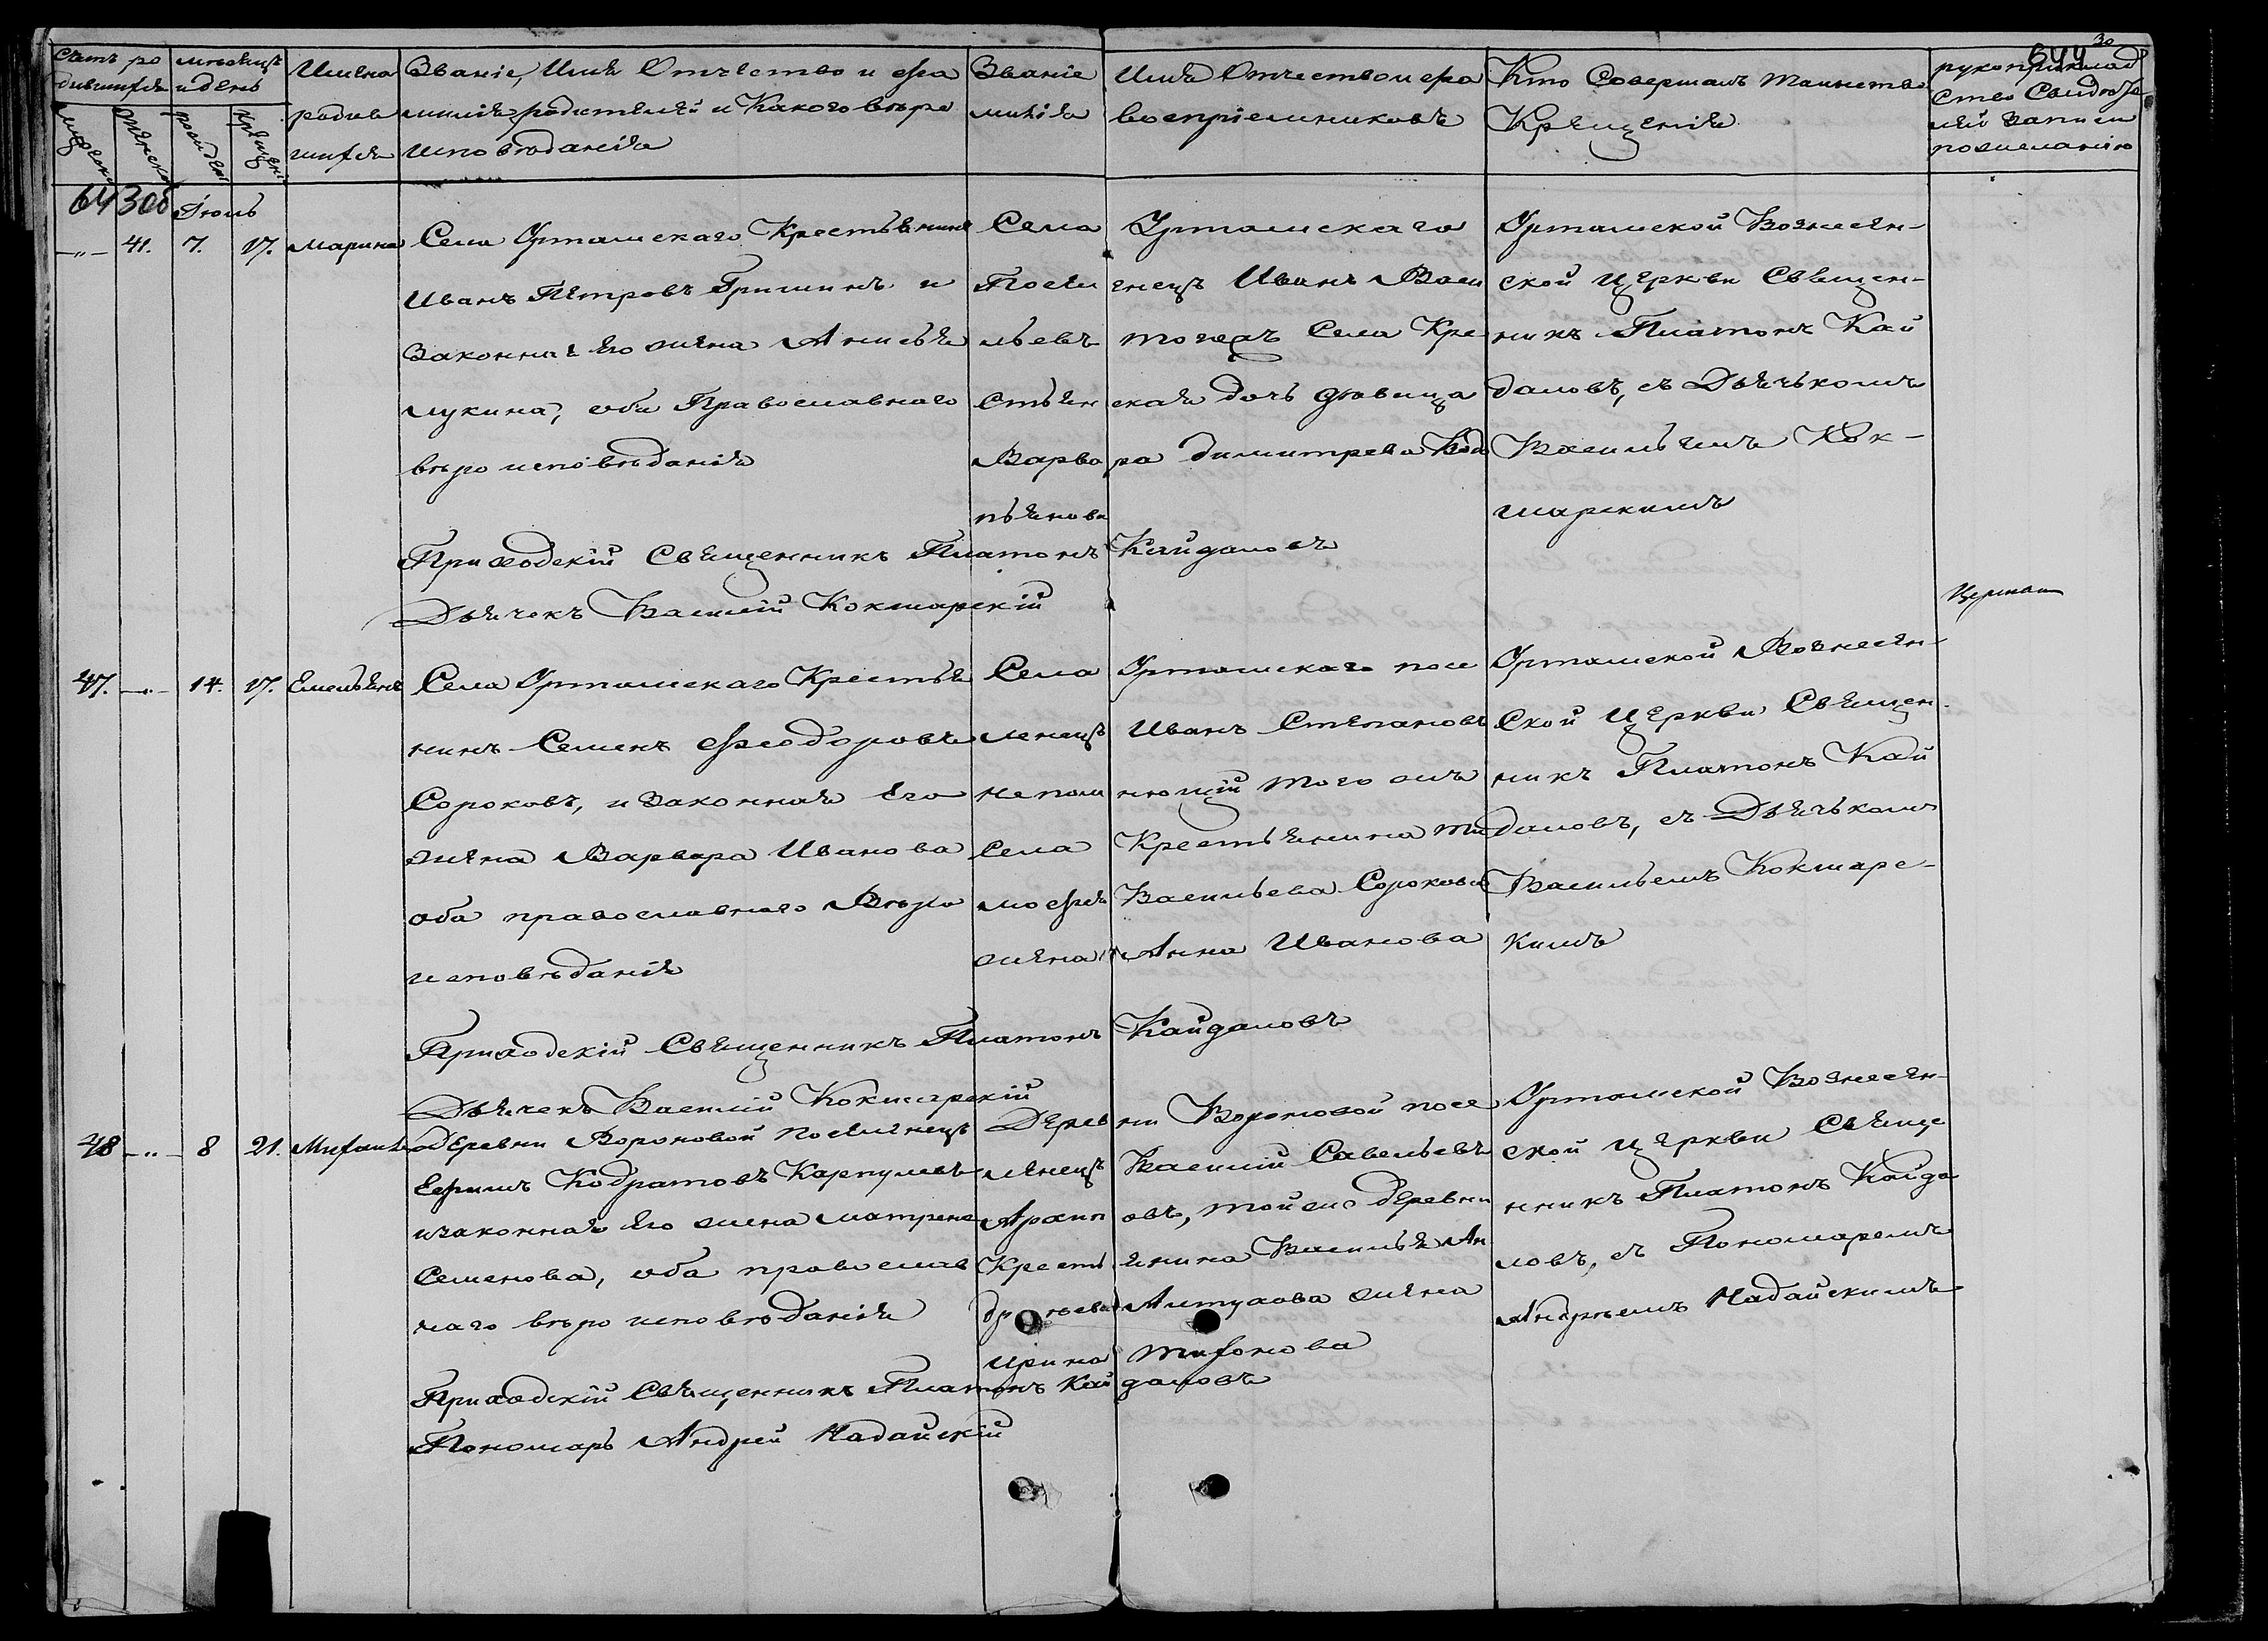 644 30
Счетъ родившихся
мужеска
женска
месяцъ и день
рожденія
крещенія
Имена родившихся
Званіе, Имя Отчество и фамилія родителей и Какого веро исповѣданія
Званіе Имя Отчество и фамилія воспріемниковъ
Кто Совершалъ Таинство Крещенія
рукоприкладство Свидѣтелей записи по желанію
64 30б Іюль
—„— 41. 7. 17. Марина
Села Уртамскаго Крестьянинъ
Иванъ Петровъ Гришинъ и
законная его жена Анисья
Лукина, оба Православнаго
вѣроисповѣданія
Села Уртамскаго
Поселенецъ Иванъ Васи
льевъ тогожъ Села Кре
стьянская дочь девица
Варвара Димитрева Код
пьянова
Уртамской Вознесен-
ской Церкви Священ-
никъ Платонъ Кай
даловъ, съ Дьячькомъ
Васильемъ Кок-
шарскимъ
Приходскій Священникъ Платонъ Кайдаловъ
Дьячекъ Василій Кокшарскій
47. —„— 14. 17. Емельянъ
Села Уртамскаго Крестья
нинъ Семенъ Феодоровъ
Сороковъ, и законная Его
жена Варвара Иванова
оба православнаго Вѣро
исповѣданія
Села Уртамскаго посе
ленецъ Иванъ Степановъ
непомнющій того жъ
Села Крестьянина Ти
мофея Васильева Сорокова
жена Анна Иванова
Уртамской Вознесен-
Ской Церкви Священ-
никъ Платонъ Кай
даловъ, съ Дьячькомъ
Васильемъ Кокшарс-
кимъ
Приходскій Священникъ Платонъ Кайдаловъ
Дьячекъ Василій Кокшарскій
48 —„— 8 21.
Деревни Вороновой Поселенецъ
Ефимъ Кодратовъ
изаконная Его жена Матрена
Семенова, оба православ
наго вѣро исповѣданія
Деревни Вороновой посе
ленецъ Василій Савельевъ
Архиповъ, тойже деревни
Крестьянина Василья Ан
дреева жена
Ирина
Уртамской Вознесен-
ской Церкви Свяще
нникъ Платонъ Кайда
ловъ, съ Пономаремъ
Андреемъ Надайскимъ
Приходскій Священникъ Платонъ Кайдаловъ
Пономарь Андрей Надайскій